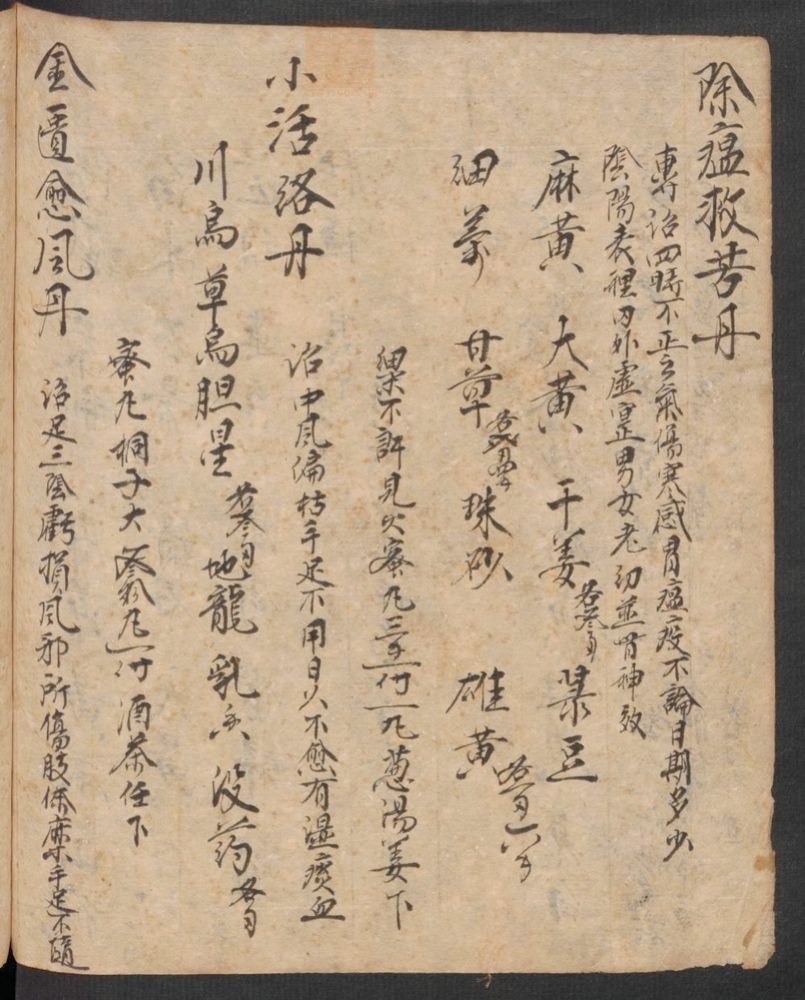 除瘟救苦丹
專治四時不正之氣傷寒感冒瘟疫不論日期多少
陰陽表裡內外虛寔男女老幼並皆神效
麻黃 大黃 干姜 各叁 菉豆
細蓡 甘草 各 珠砂 雄黃
不許見火蜜丸 付一丸葱湯姜下
小活洛丹 治中風偏枯手足不用日久不愈有濕痰血
川烏 草烏 胆星 各叁 地龍 乳香 没药 各
蜜丸桐子大 丸一付酒茶任下
金匱愈風丹 治足三陰虧損風邪所傷肢体麻木手足不隨